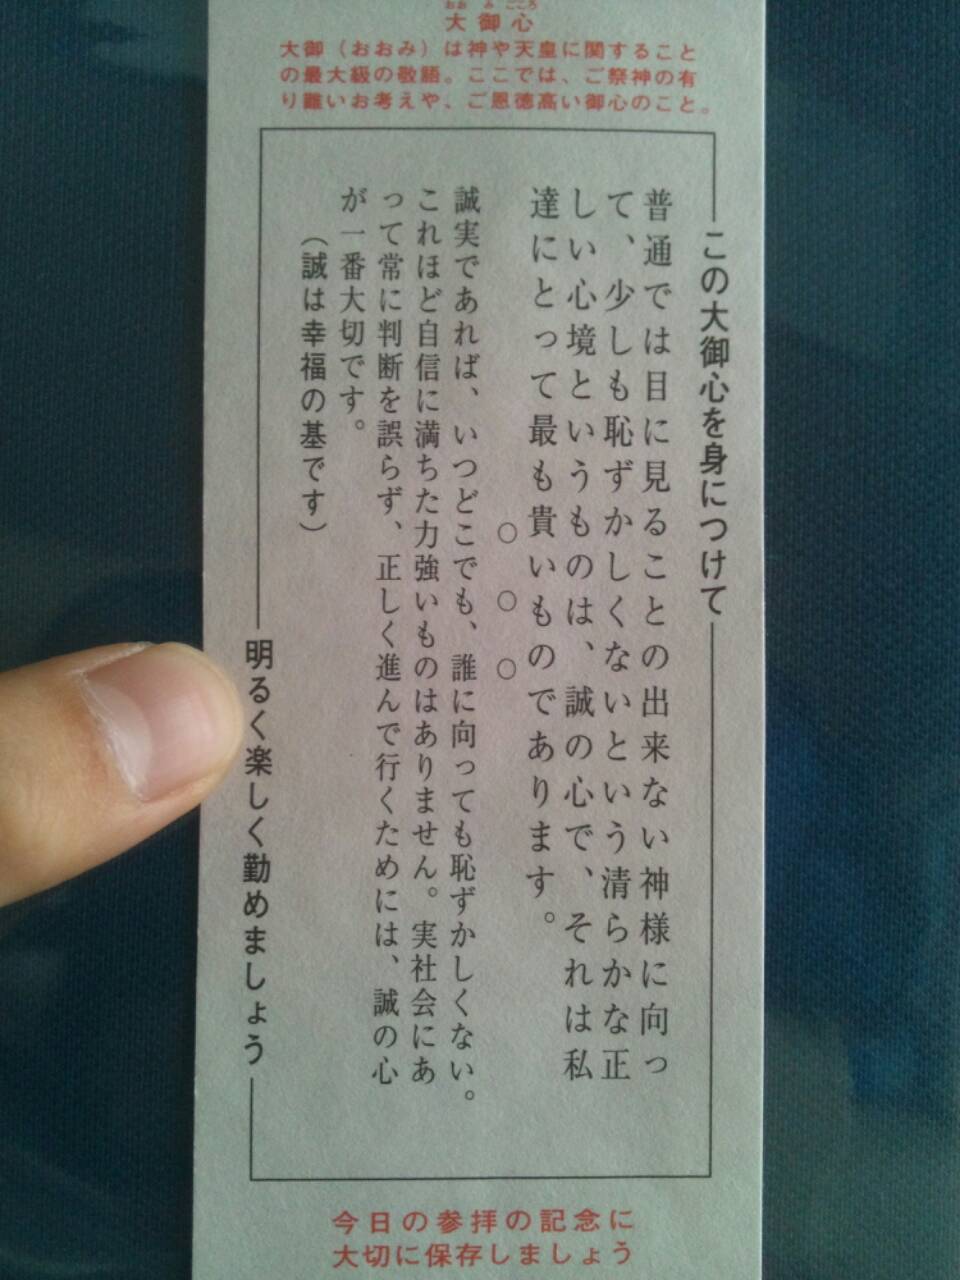 おおみこころ
大御心
大御（おおみ）は神や天皇に関すること
の最大級の敬語。ここでは、ご祭神の有
り難いお考えや、ご恩徳高い御心のこと。
この大御心を身につけて
普通では目に見ることの出来ない神様に向っ
て、少しも恥ずかしくないという清らかな正
しい心境というものは、誠の心で、それは私
達にとって最も貴いものであります。
○○○
誠実であれば、いつどこでも、誰に向っても恥ずかしくない。
これほど自信に満ちた力強いものはありません。実社会にあ
って常に判断を誤らず、正しく進んで行くためには、誠の心
が一番大切です。
（誠は幸福の基です）
明るく楽しく勤めましょう
今日の参拝の記念に
大切に保存しましょう